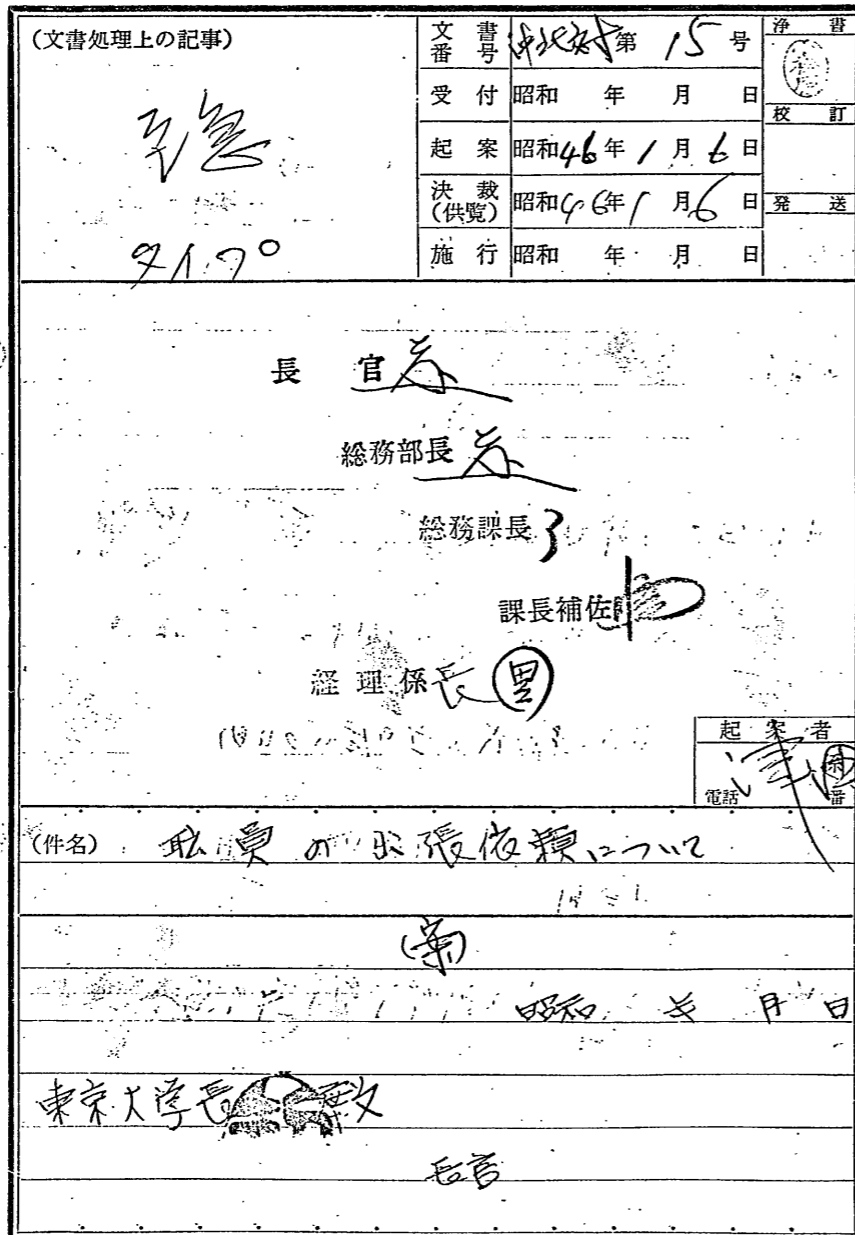 (文書処理上の記事)
至急
タイプ
文書番号 沖北対第 15 号
受付 昭和 年 月 日
起案 昭和46年1月6日
決裁(供覧) 昭和46年1月6日
施行 昭和 年 月 日
浄書
校訂
発送
長官
総務部長
総務課長
課長補佐
経理係長
起案者
電話 番
(件名) 職員の出張依頼について
(案)
昭和 年 月 日
東京大学長 殿
長官